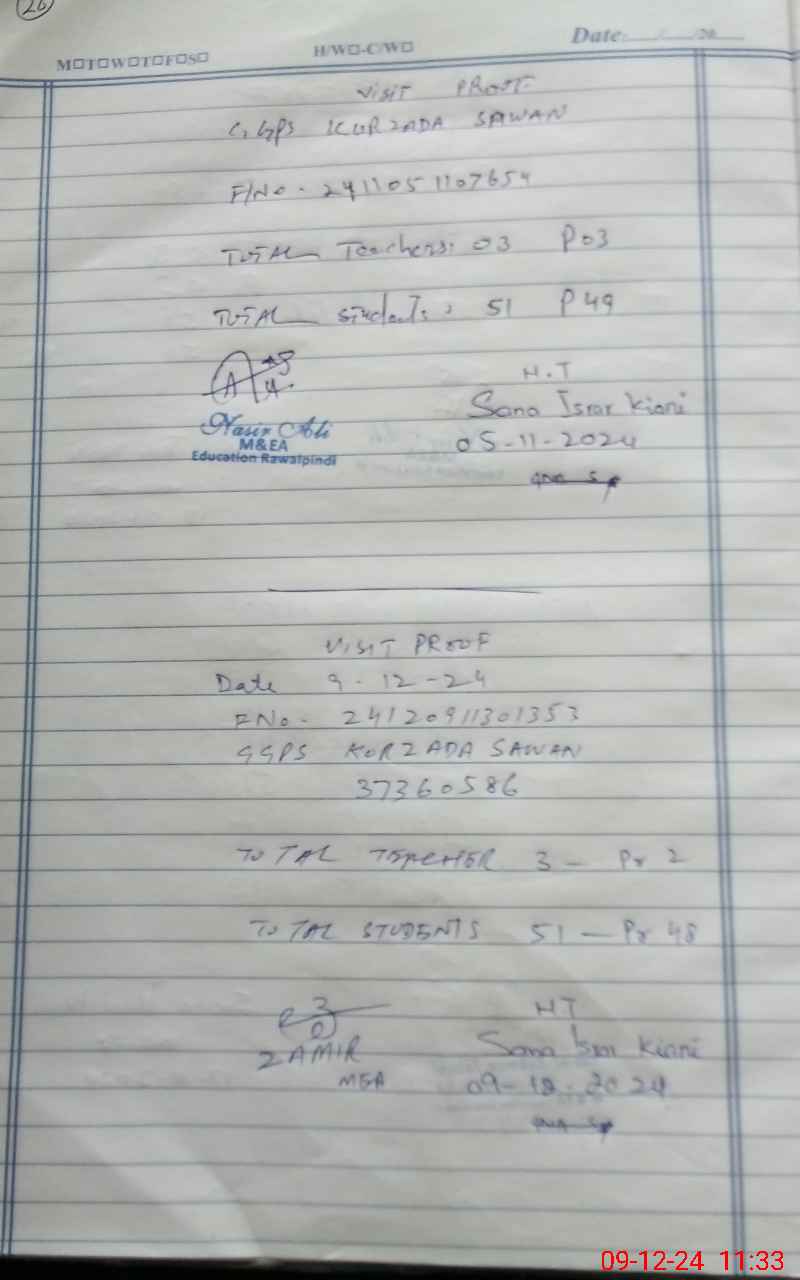 26
M□T□W□T□F□S□ H/W□-C/W□ Date: / /20
VISIT PROOF
GGPS KURZADA SAWAN
F/No. 2411051107654
TOTAL Teachers: 03 P03
TOTAL Students: 51 P49
H.T
Sana Israr Kiani
Nasir Ali
M&EA
Education Rawalpindi
05-11-2024
VISIT PROOF
Date 9-12-24
FNo. 24120911301353
GGPS KORZADA SAWAN
37360586
TOTAL TEACHER 3 - Pr 2
TOTAL STUDENTS 51 - Pr 48
HT
ZAMIR
Sana Israr Kiani
MEA
09-12-2024
09-12-24 11:33